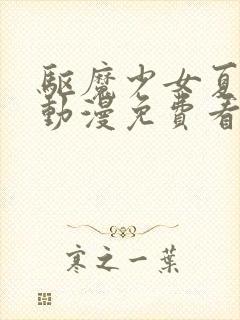 驅魔少女夏
動漫免費看
寒之一葉